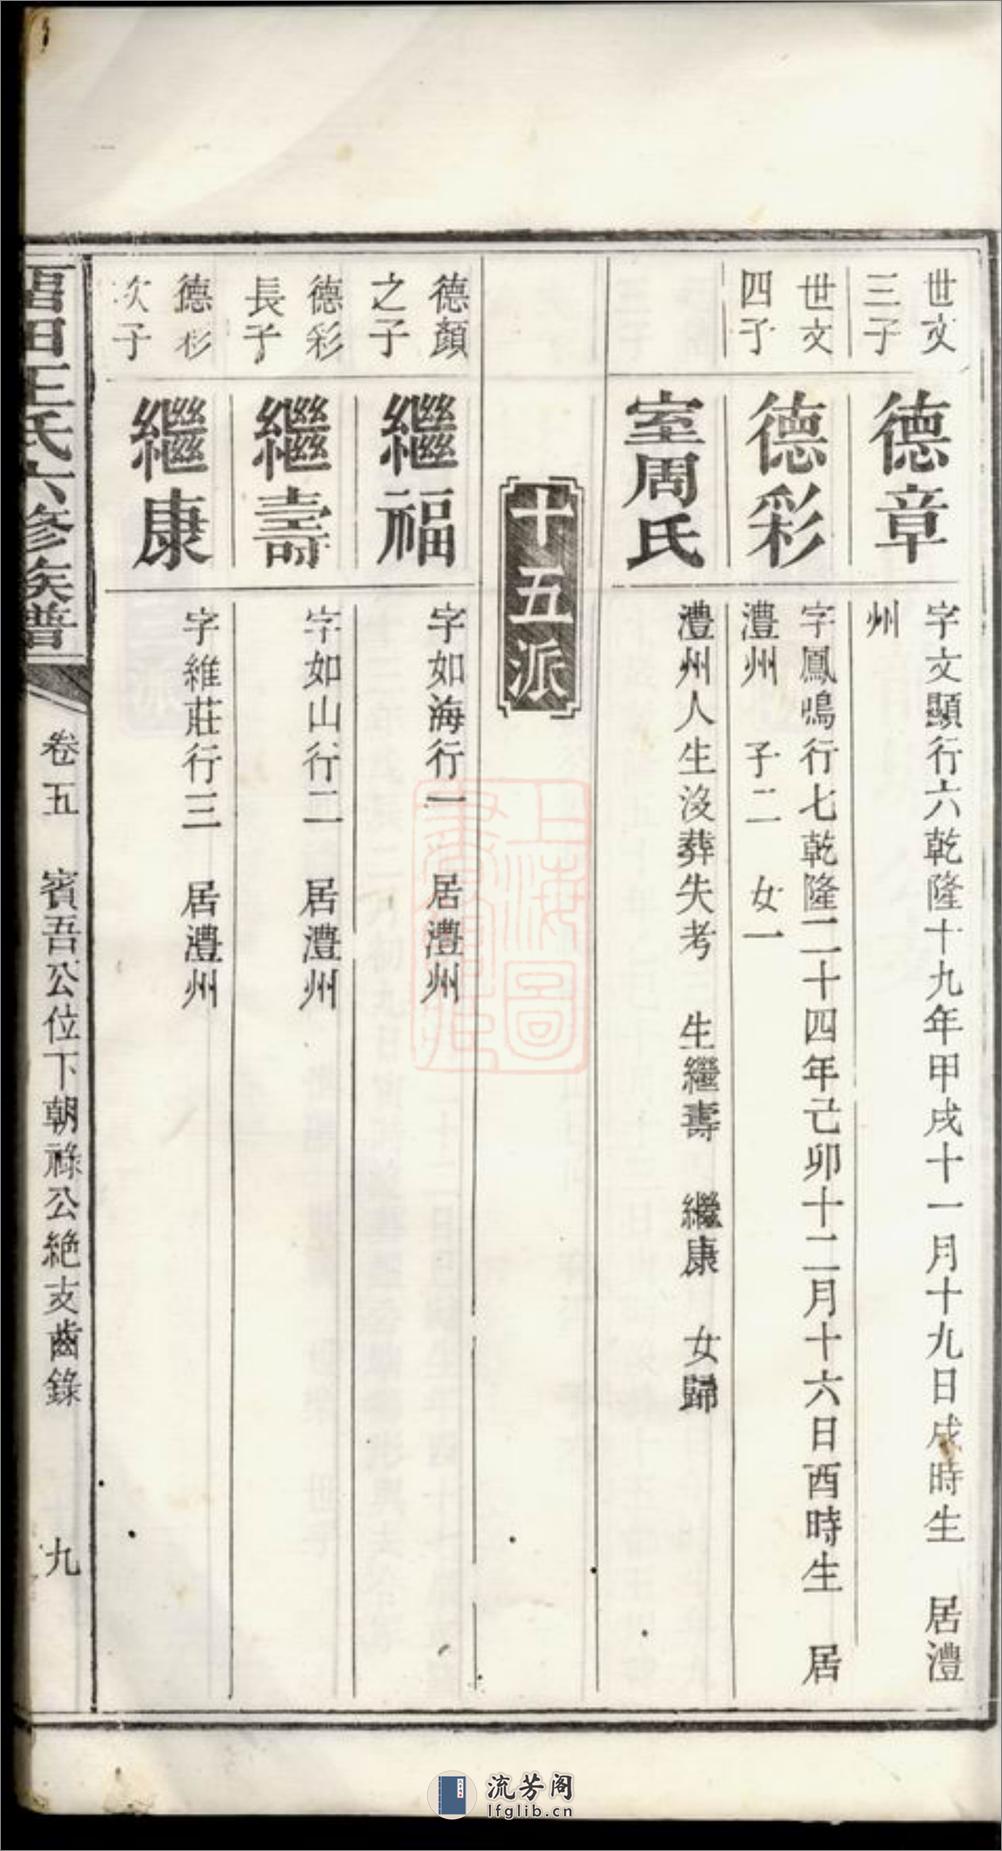 世文
三子
德章
字文顯行六乾隆十九年甲戌十一月十九日戌時生 居澧
州
世文
四子
德彩
字鳳鳴行七乾隆二十四年己卯十二月十六日酉時生 居
澧州 子二 女一
室周氏
澧州人生沒葬失考 生繼壽 繼康 女歸
十五派
德顏
之子
繼福
字如海行一 居澧州
德彩
長子
繼壽
字如山行二 居澧州
德彩
次子
繼康
字維莊行三 居澧州
田王氏六修族譜
卷五 賓吾公位下朝祿公絶支齒錄 九
上海圖
流芳阁
lfglib.cn